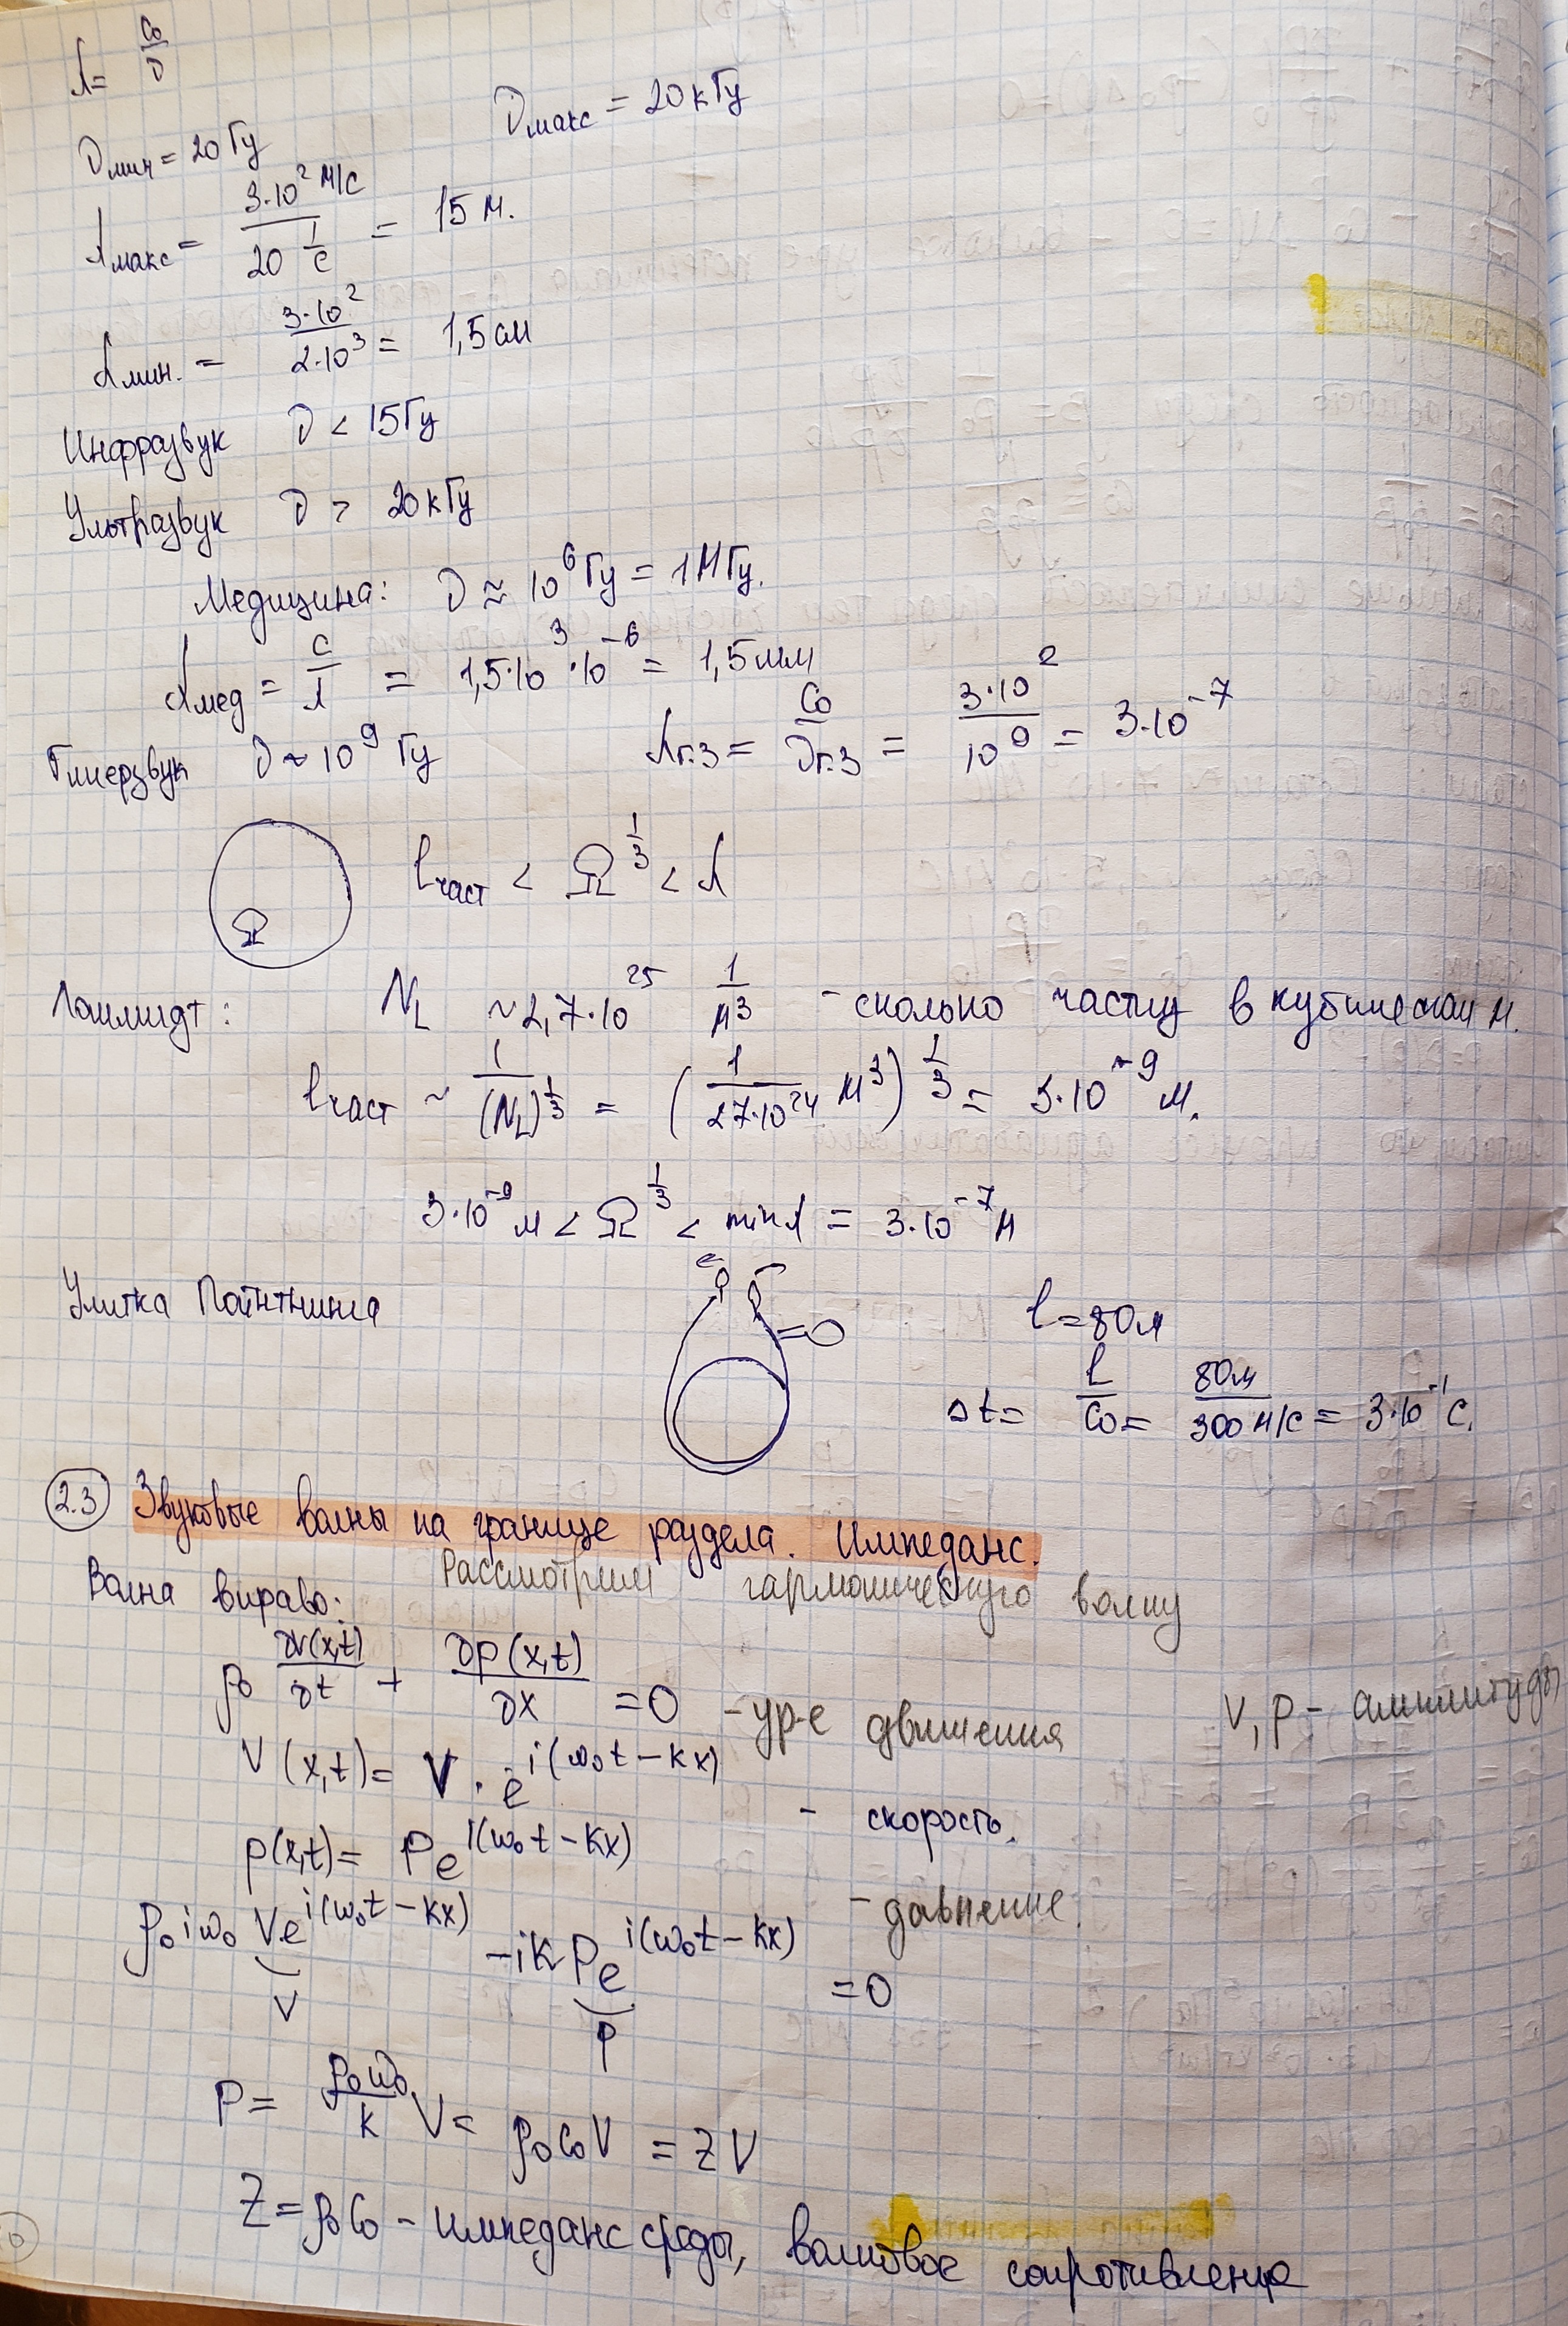 λ = C₀/ν
ν мин = 20 Гц ν макс = 20 кГц
λ макс = 3·10² м/с / 20 1/с = 15 м.
λ мин. = 3·10² / 2·10³ = 1,5 см
Инфразвук ν < 15 Гц
Ультразвук ν > 20 кГц
Медицина: ν ≈ 10⁶ Гц = 1 МГц.
λ мед = c/λ = 1,5·10³·10⁻⁶ = 1,5 мм
Гиперзвук ν ~ 10⁹ Гц λ г.з = C₀/ν г.з = 3·10²/10⁹ = 3·10⁻⁷
Ω l част < Ω^(1/3) < λ
Лошмидт: N_L ~ 2,7·10²⁵ 1/м³ - сколько частиц в кубическом м.
l част ~ 1/(N_L)^(1/3) = (1/27·10²⁴ м³)^(1/3) = 3·10⁻⁹ м.
3·10⁻⁹ м < Ω^(1/3) < min λ = 3·10⁻⁷ м
Улитка l = 80 м
Δt = l/C₀ = 80м / 300 м/с = 3·10⁻¹ с.
2.3 Звуковые волны на границе раздела. Импеданс.
Волна вправо: Рассмотрим гармоническую волну
ρ₀ ∂v(x,t)/∂t + ∂p(x,t)/∂x = 0 - ур-е движения V, p - амплитуды
V(x,t) = V · e^i(ω₀t - kx) - скорость.
p(x,t) = P e^i(ω₀t - kx) - давление.
ρ₀ i ω₀ V e^i(ω₀t - kx) - i k P e^i(ω₀t - kx) = 0
V P
P = ρ₀ω₀/k V = ρ₀C₀V = ZV
Z = ρ₀C₀ - импеданс среды, волновое сопротивление